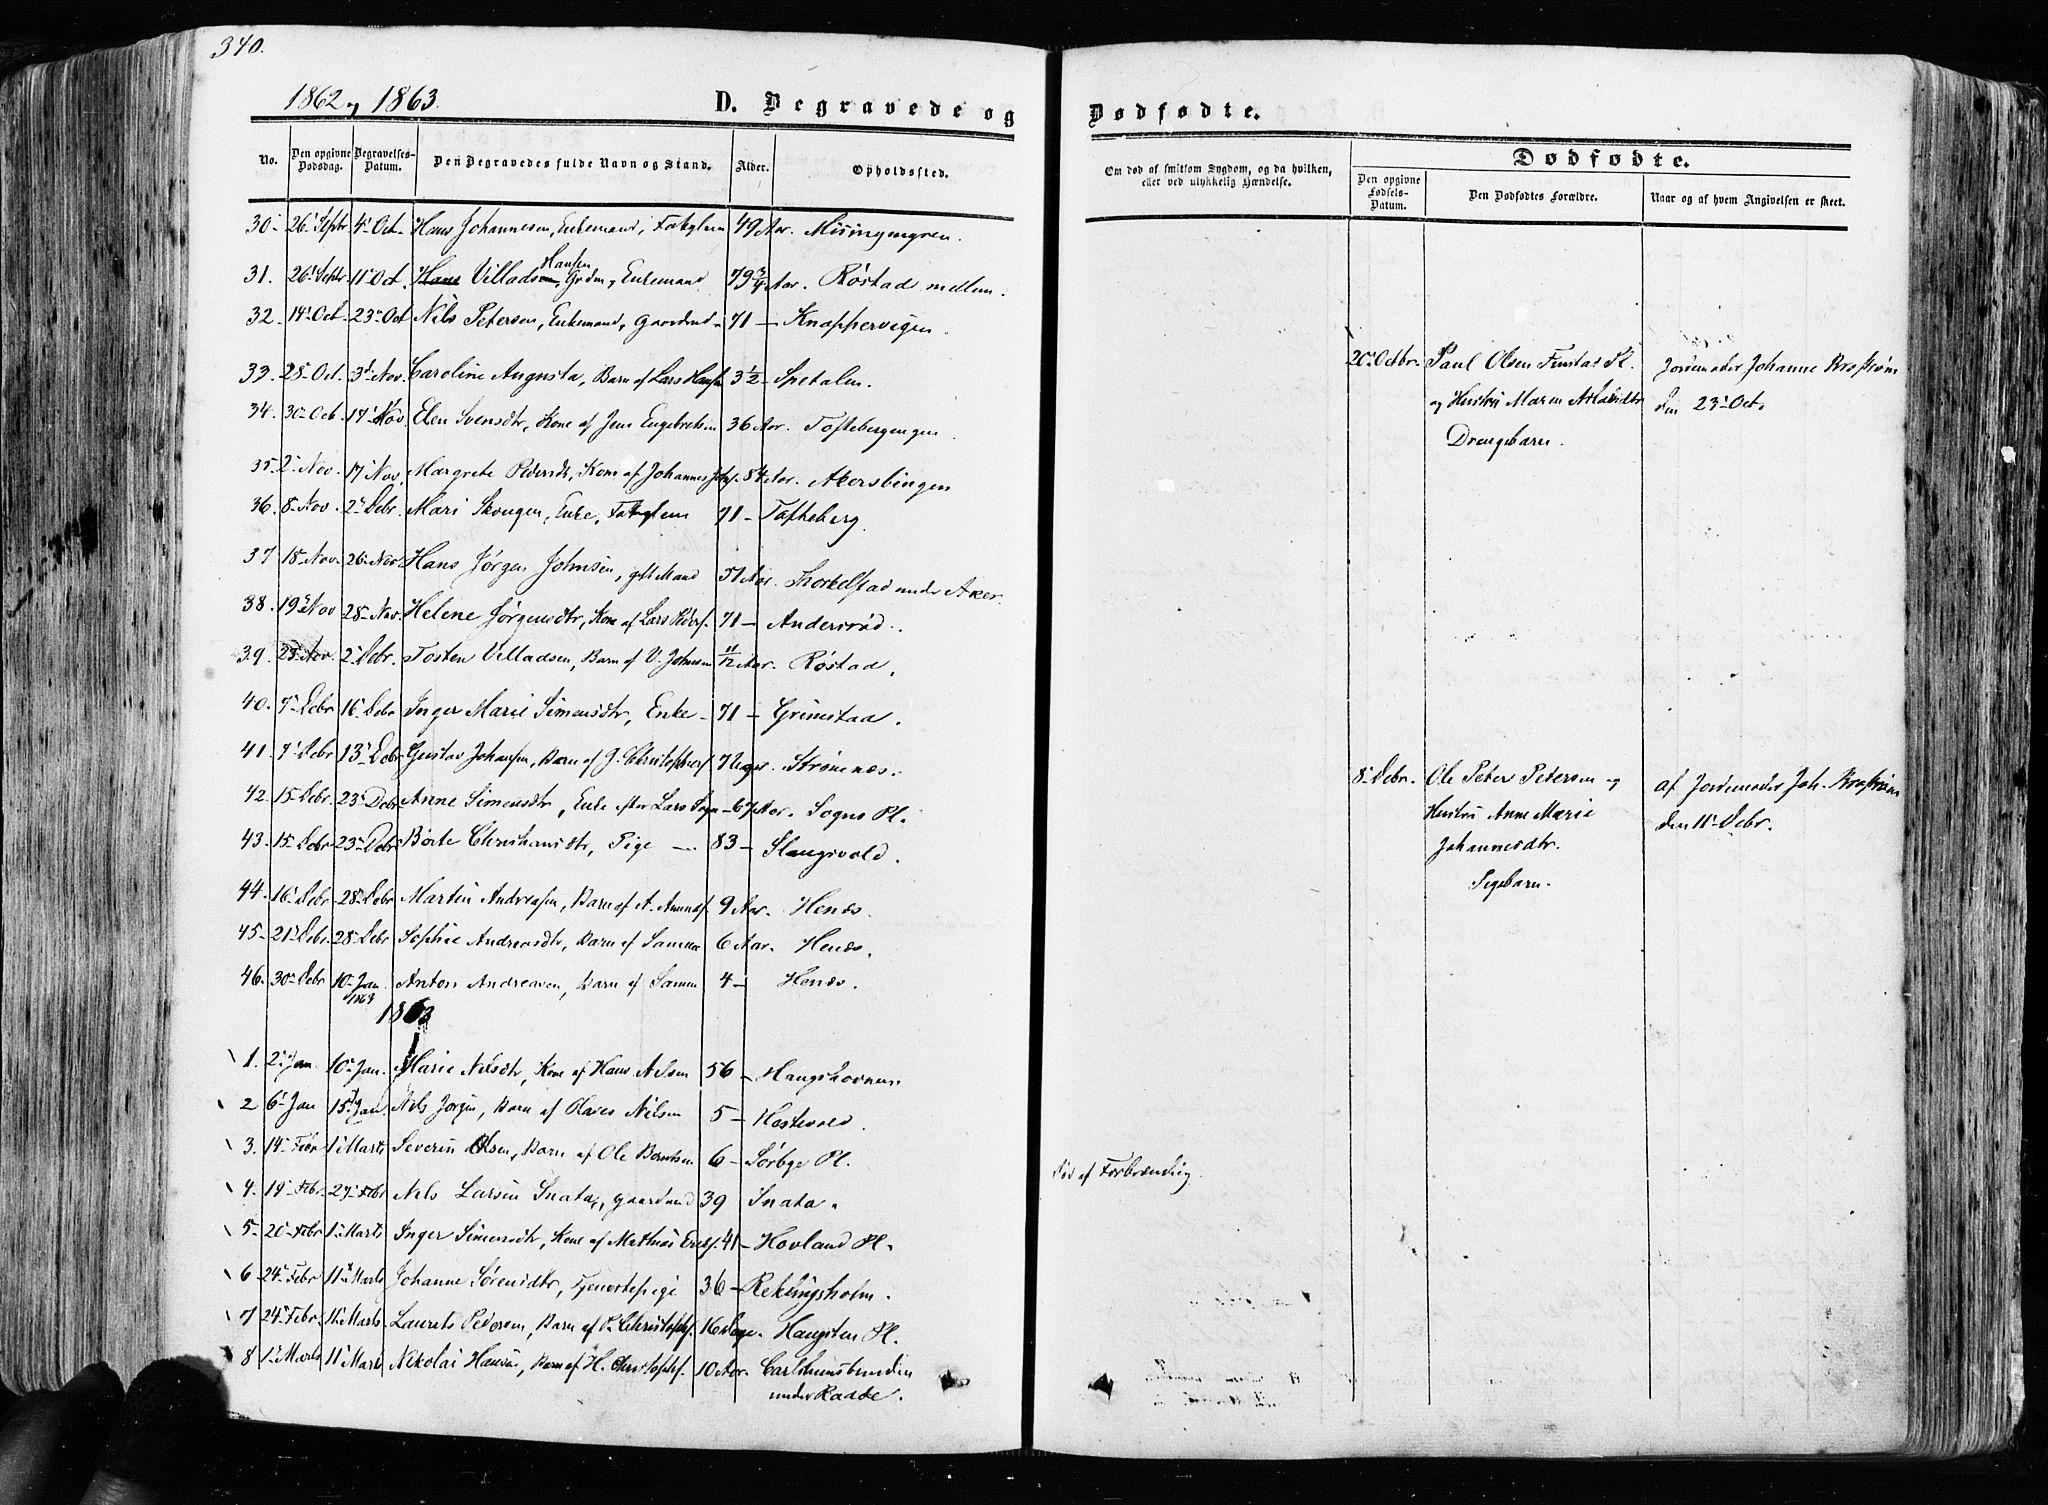 340.
1862 og 1863.
D. Begravede og Dødfødte.
No. Den opgivne Dødsdag. Begravelses-Datum. Den Begravedes fulde Navn og Stand. Alder. Opholdssted.
Om død af smitsom Sygdom, og da hvilken, eller ved ulykkelig Hændelse.
Dødfødte.
Den opgivne Fødsels-Datum. Den Dødfødtes Forældre. Naar og af hvem Angivelsen er skeet.
30. 26. Septbr 4. Oct. Hans Johannesen, Enkemand, 49 Aar. Misingengren.
31. 26. Septbr 11. Oct. Hans Villadsen, Hansen Enkemand 79 3/4 Aar. Røstad mellem.
32. 14. Oct. 23. Oct Nils Petersen, Enkemand, Gaardmd. 71 — Knappervigen.
33. 28. Oct. 3d. Nov. Caroline Augusta, Barn af Lars Hansen 3 1/2 — Spetalen.
34. 30. Octb. 17. Nov Elen Svensdtr, Kone af Jens Engebretsen 36 Aar. Toftebergengen.
35. 2. Nov. 17. Nov. Margrete Pedersdtr, Kone af Johannes 84 Aar. Akersbingen
36. 8. Nov. 2. Debr. Mari Skougen, Enke, 71 — Tofteberg.
37 18. Nov. 26. Nov Hans Jørgen Johnsen, gift Mand 51 Aar. Thorkelstad under Aker.
38. 19. Nov 28. Nov. Helene Jørgensdtr, Kone af Lars Peders. 71 — Andersrød.
39. 23. Nov. 2. Debr. Tosten Villadsen, Barn af V. Johnsen 11/12 Aar. Røstad.
40. 7. Debr 16. Debr Inger Marie Simensdtr, Enke — 71 — Grimstad.
41. 7. Debr 13. Debr Gustav Johansen, Barn af J. Christophers. 7 Uger. Strømnæs.
42. 15. Debr. 23. Debr. Anne Simensdtr, Enke efter Lars Sogn — 67 Aar. Sogns Pl.
43. 15. Debr 23. Debr Børte Christiansdtr, Pige — 83 — Slangsvold.
44. 16. Debr 28. Debr Martin Andreasen, Barn af A. Amunds. 9 Aar. Henæs.
45. 21. Debr. 28. Debr Sophie Andreasdtr, Barn af Samme 6 Aar. Henæs.
46. 30. Debr 10. Jan 1863 Anton Andreasen, Barn af Samme 4 — Henæs.
1863
1. 2. Jan 10. Jan. Marie Nilsdtr, Kone af Hans Nilsen 56 —
2 6. Jan 15. Jan Nils Jørgen, Barn af Olaves Nilsen 5 — Hestvold.
3. 14. Febr 1. Marts Severin Olsen, Barn af Ole Berntsen 6 — Sørbye Pl.
4. 19. Febr. 27. Febr Nils Larsen Snata, Gaardmand 39 Snata.
5. 20. Febr 1. Marts Inger Simensdtr, Kone af Mathias Ericks. 41 — Hovland Pl.
6 24. Febr 11. Marts Johanne Sørensdtr, Tjenestepige 36 — Reklingsholm.
7 24. Febr. 11. Marts Laurits Pedersen, Barn af P. Christophs. 16 Dage. Haugsten Pl.
8 1. Marts 11. Marts Nikolai Hansen, Barn af H. Christophs. 10 Aar. Carlshusbunden under Raade.
20. Octbr. Paul Olsen Finstad Pl.
og Hustru Maren
Drengebarn.
Jordemoder Johanne
den 23. Oct.
8. Debr. Ole Peter Petersen og
Hustru Anne Marie
Johannesdtr.
Pigebarn.
af Jordemoder Joh.
den 11. Debr.
Død af Forbrænding.